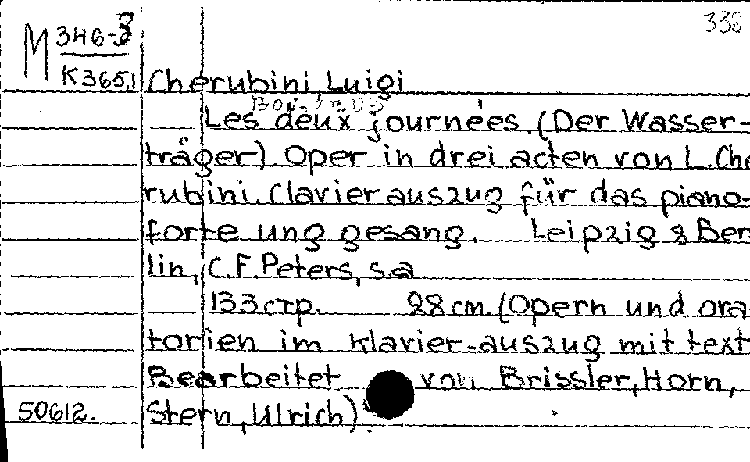 338
M 346-3
K365,1 Cherubini, Luigi
Les deux journées. (Der Wasser-
träger). Oper in drei acten von L. Che
rubini. Clavierauszug für das piano-
forte ung gesang. Leipzig & Ber
lin, C.F. Peters, s.a
133 стр. 28 cm. (Opern und ora
torien im klavier-auszug mit text
Bearbeitet von Brissler, Horn,
50612. Stern, Ulrich).